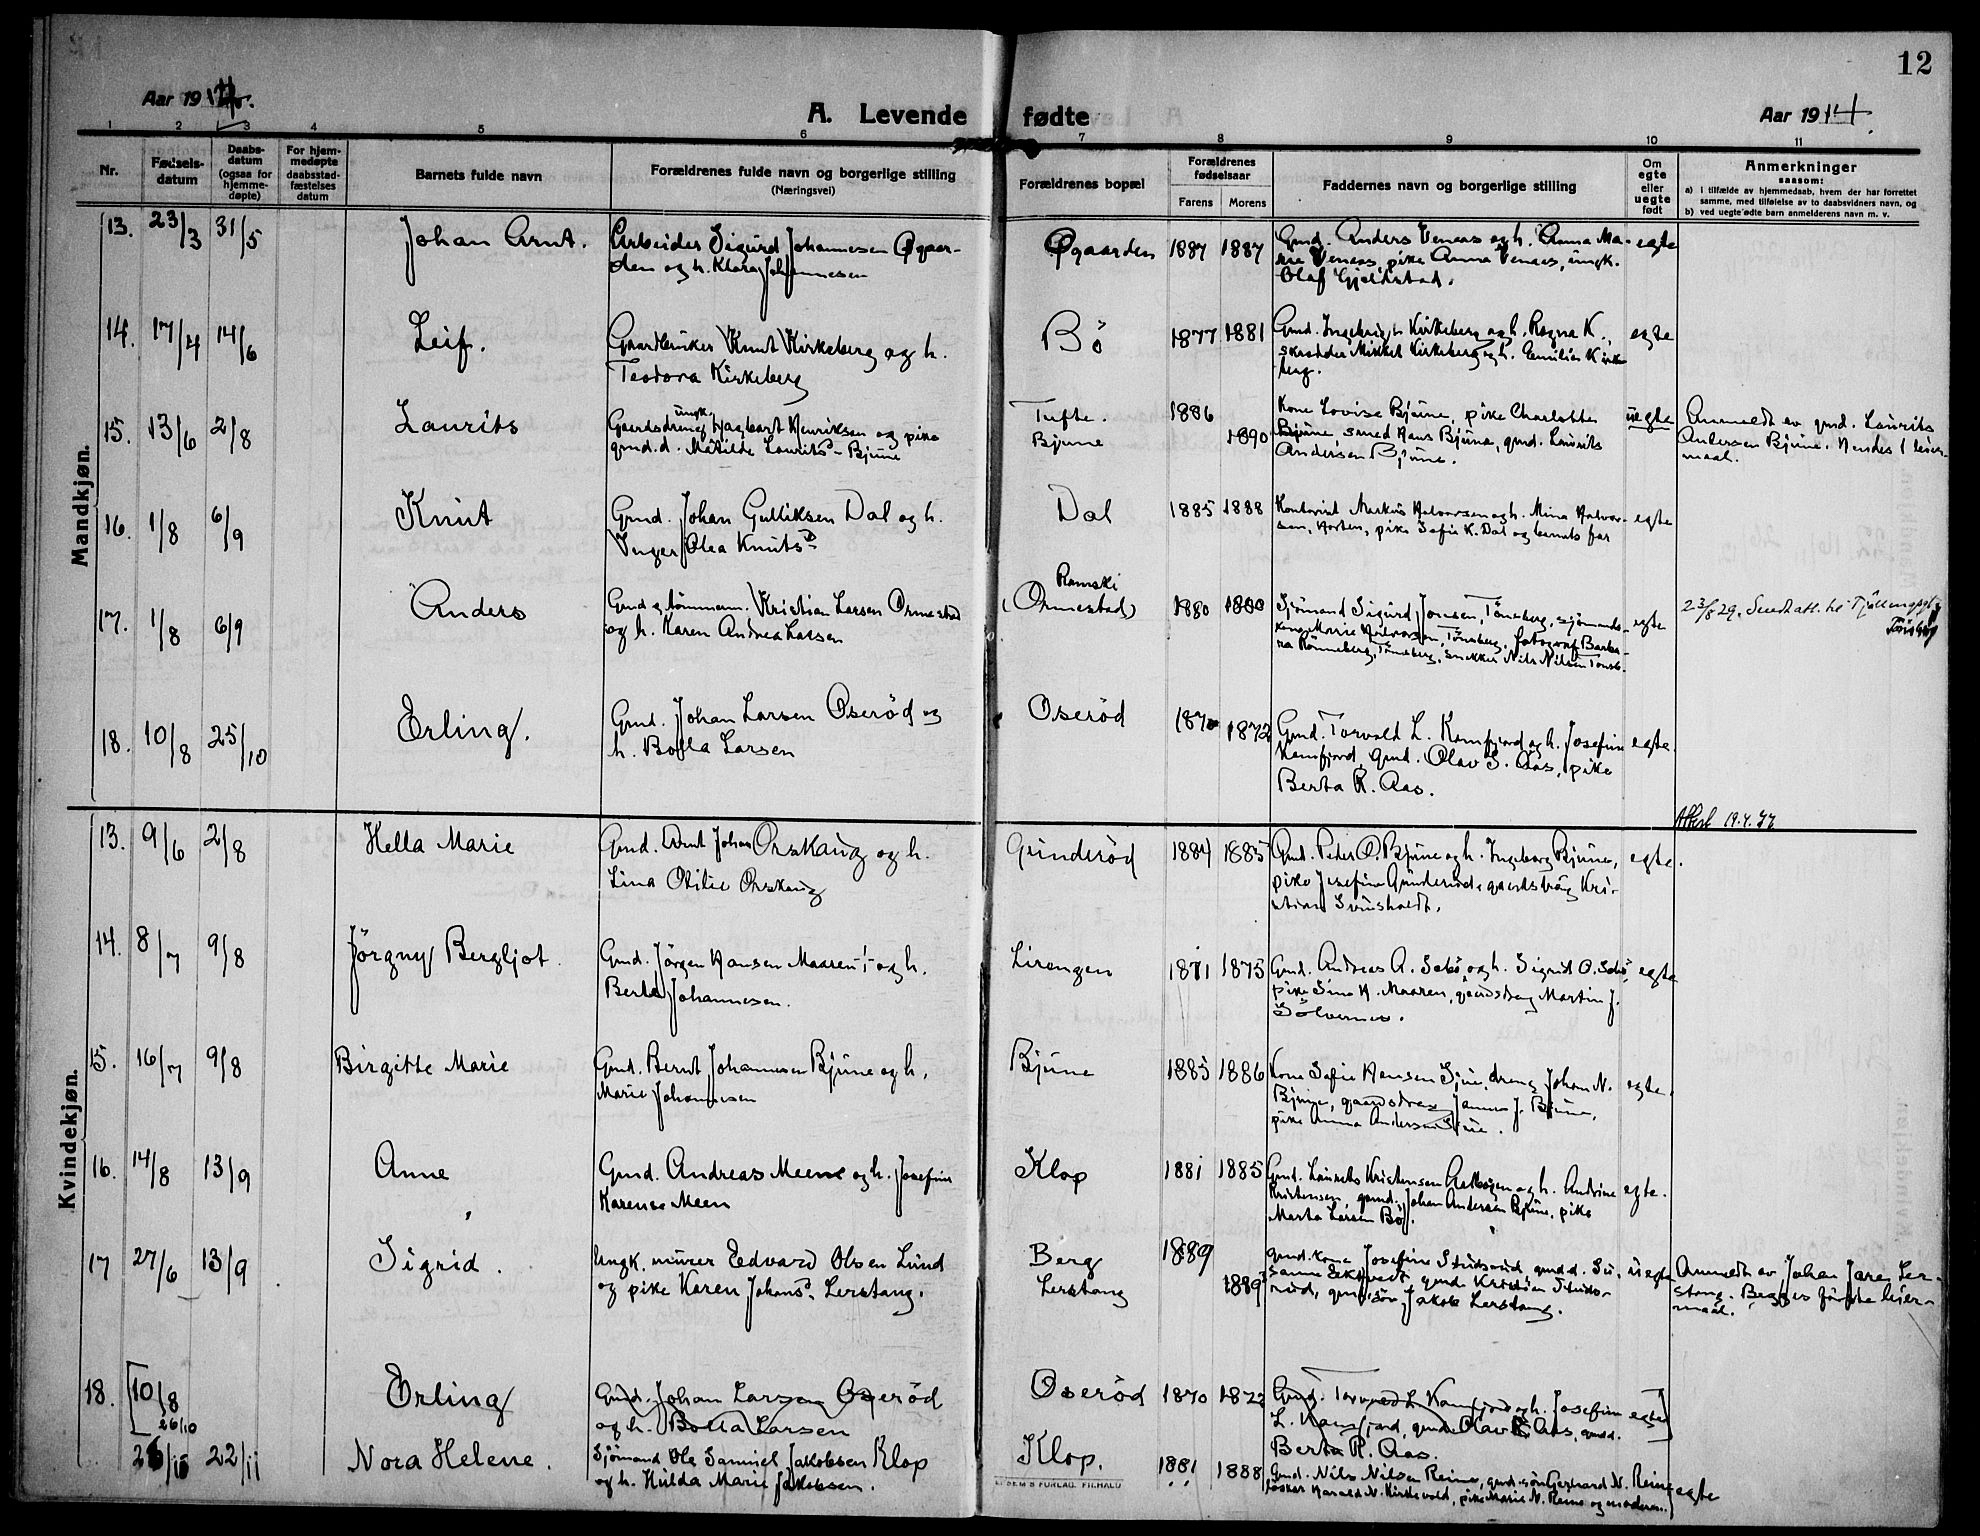 12
Aar 1914.
A. Levende fødte
Aar 1914.
1 2 3 4 5 6 7 8 9 10 11
Nr.
Fødsels-datum
Daabs-datum (ogsaa for hjemme-døpte)
For hjem-medøpte daabsstad-fæstelses datum
Barnets fulde navn
Forældrenes fulde navn og borgerlige stilling
(Næringsvei)
Forældrenes bopæl
Forældrenes fødselsaar
Farens Morens
Faddernes navn og borgerlige stilling
Om egte eller uegte født
Anmerkninger
saasom:
a) i tilfælde av hjemmedaab, hvem der har forrettet
samme, med tilføielse av to daabsvidners navn, og
b) ved uegte fødte barn anmelderens navn m. v.
Mandkjøn.
13. 23/3 31/5 Johan Arnt. Arbeider Sigurd Johannesen Øgaar-
den og h. Klara Johannesen
Øgaarden 1887 1887 Gmd. Anders Venaas og h. Anna Ma-
rie Venaas, pike Anna Venaas, ungk.
Olaf Gjelstad.
egte
14. 17/4 14/6 Leif. Gaardbruker Knut Kirkeberg og h.
Teodora Kirkeberg
Bö 1877 1881 Gmd. Kirkeberg og h. Ragna K.,
skrædder Mikkel Kirkeberg og h. Emilie Kirke-
berg.
egte
15. 13/6 2/8 Laurits ungk.
Gaardsdreng Hagbart Henriksen og pike
gmd.d. Matilde Lauritsd. Bjune
Tufte. 1886
Bjune 1890
Kone Lovise Bjune, pike Charlotte
Bjune, smed Hans Bjune, gmd. Laurits
Andersen Bjune.
uegte
Anmeldt av gmd. Laurits
Andersen Bjune. Hendes 1 leier-
maal.
16. 1/8 6/9 Knut Gmd. Johan Gulliksen Dal og h.
Inger Olea Knutsd.
Dal 1885 1888 Kontorist Markus Halvorsen og h. Mina Halvor-
sen, Horten, pike Sofie K. Dal og barnets far
egte
17. 1/8 6/9 Anders Gmd. og tömmerm. Kristian Larsen Ormestad
og h. Karen Andrea Larsen
Ramski
(Ormestad) 1880 1880 Sjömand Sigurd Jonsen, Tönsberg, sjömands-
kone Marie Halvorsen, Tönsberg, fotograf Barba-
ra Rönneberg, Tönsberg, snekker Nils Nilsen Tönsb.
egte
23/8 29. Sendt att. til Tjöllingpgt
Tönsberg
18. 10/8 25/10 Erling. Gmd. Johan Larsen Oseröd og
h. Bolla Larsen
Oseröd 1870 1872 Gmd. Torvald L. Kamfjord og h. Josefine
Kamfjord, gmd. Olav S. Aas, pike
Berta R. Aas.
egte.
19.4.77
Kvindekjøn.
13. 9/6 2/8 Hella Marie Gmd. Arnt Johan Orskaug og h.
Lina Otilie Orskaug
Gunderöd 1884 1885 Gmd. Peter O. Bjune og h. Ingeborg Bjune,
pike Josefine Gunderöd, gaardsdräng Kri-
stian Svinsholdt.
egte.
14. 8/7 9/8 Jörgny Bergljot. Gmd. Jörgen Hansen Maaren og h.
Berta Johannesen.
Lirengen 1871 1875 Gmd. Andreas A. Sebö og h. Sigrid O. Sebö,
pike Sina H. Maaren, gaardsdreng Martin J.
Sölvernes.
egte
15. 16/7 9/8 Birgitte Marie Gmd. Bernt Johannesen Bjune og h.
Marie Johannesen
Bjune 1885 1886 Kone Sofie Hansen Sjue, dreng Johan N.
Bjune, gaardsdreng J. Bjune,
pike Anna Andersen Sjue.
egte.
16. 14/8 13/9 Anne Gmd. Andreas Meen og h. Josefine
Karense Meen
Klop 1881 1885 Gmd. Laurits Kristensen og h. Andrine
Kristensen, gmd. Johan Andersen Bjune, pike
Marta Larsen Bö.
egte.
17 27/6 13/9 Sigrid. Ungk. murer Edvard Olsen Lund
og pike Karen Johansd. Lerstang.
Berg 1889
Lerstang 1889
gmd.kone Josefine Studsrud, gmd.d. Su-
sanne Ekqvedt, gmd. Kristian Studs-
rud, gmd.sön Jakob Lerstang.
uegte
Anmeldt av Johan Jare, Ler-
stang. Begges förste leier-
maal.
18. 10/8 26/10 Erling Gmd. Johan Larsen Oseröd
og h. Bolla Larsen
Oseröd 1870 1872 Gmd. Torvald L. Kamfjord og h. Josefine
L. Kamfjord, gmd. Olav S. Aas, gmd.
Berta R. Aas.
egte
26/10 22/11 Nora Helene. Sjömand Ole Samuel Jakobsen Klop
og h. Hulda Marie Jakobsen.
Klop. 1881 1888 Gmd. Nils Nilsen Reine, gmd.sön Gerhard N. Reine
Harald N. Kirkevold, pike Marie N. Reine og moderen.
egte
SEM'S FORLAG, FR.HALD